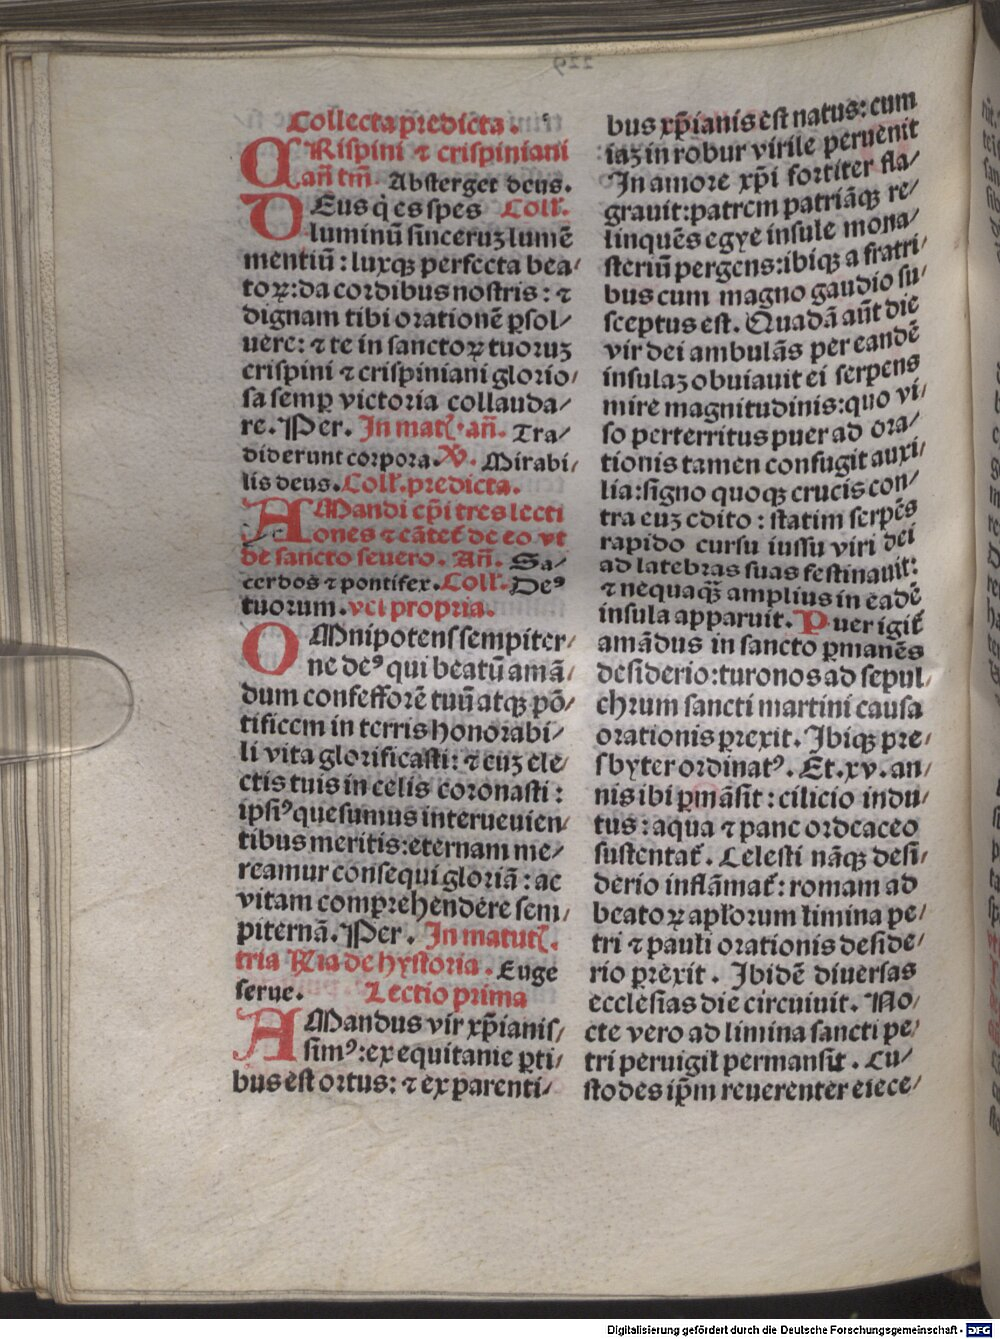 Collecta p̃redicta.
CRispini ⁊ crispiniani
añ tm̃. Absterget deus.
DEus q̇ es spes Coll̃.
luminū sinceruꝫ lumē
mentiū: luxqꝫ perfecta bea⸗
toꝝ: da cordibus nostris: ⁊
dignam tibi orationē ꝑsol⸗
uere: ⁊ te in sanctoꝝ tuoruꝫ
crispini ⁊ crispiniani glorio⸗
sa semꝑ victoria collauda⸗
re. Per. In mat̃. añ. Tra⸗
diderunt corpora. V̕. Mirabi⸗
lis deus. Coll̃. predicta.
AMandi ep̃i tres lecti
ones ⁊ cātet̃ de eo vt
de sancto seuero. Añ. Sa⸗
cerdos ⁊ pontifex. Coll̃. Deꝰ
tuorum. vel propria.
OMnipotens sempiter⸗
ne deꝰ qui beatū amā⸗
dum confessorē tuū atqꝫ pō⸗
tificem in terris honorabi⸗
li vita glorificasti: ⁊ euꝫ ele⸗
ctis tuis in celis coronasti:
ipsiꝰ quesumus interueuien⸗
tibus meritis: eternam me⸗
reamur consequi gloriā: ac
vitam comprehendere sem⸗
piternā. Per. In matut̃.
tria R̃ia de hystoria. Euge
serue. Lectio prima
AMandus vir xp̃ianis⸗
simꝰ: ex equitanie ꝑti⸗
bus est ortus: ⁊ ex parenti⸗
bus xp̃ianis est natus: cum
iaꝫ in robur virile peruenit
In amore xp̃i fortiter fla⸗
grauit: patrem patriāqꝫ re⸗
linquēs egye insule mona⸗
steriū pergens: ibiqꝫ a fratri⸗
bus cum magno gaudio su⸗
sceptus est. Quadā aūt die
vir dei ambulās per eandē
insulaꝫ obuiauit ei serpens
mire magnitudinis: quo vi⸗
so perterritus puer ad ora⸗
tionis tamen confugit auxi⸗
lia: signo quoqꝫ crucis con⸗
tra euꝫ edito: statim serpēs
rapido cursu iussu viri dei
ad latebras suas festinauit:
⁊ nequaqꝫ̄ amplius in eadē
insula apparuit. Puer igit̃
amādus in sancto ꝑmanēs
desiderio: turonos ad sepul⸗
chrum sancti martini causa
orationis ꝑrexit. Ibiqꝫ pre⸗
sbyter ordinatꝰ. Et. xv. an⸗
nis ibi ꝑmāsit: cilicio indu⸗
tus: aqua ⁊ pane ordeaceo
sustentat̃. Celesti nāqꝫ desi⸗
derio inflāmat̃: romam ad
beatoꝝ apl̃orum limina pe⸗
tri ⁊ pauli orationis deside⸗
rio prexit. Ibidē diuersas
ecclesias die circuiuit. No⸗
cte vero ad limina sancti pe⸗
tri peruigil permansit. Cu⸗
stodes ip̃m reuerenter eiece⸗
Digitalisierung gefördert durch die Deutsche Forschungsgemeinschaft - DFG